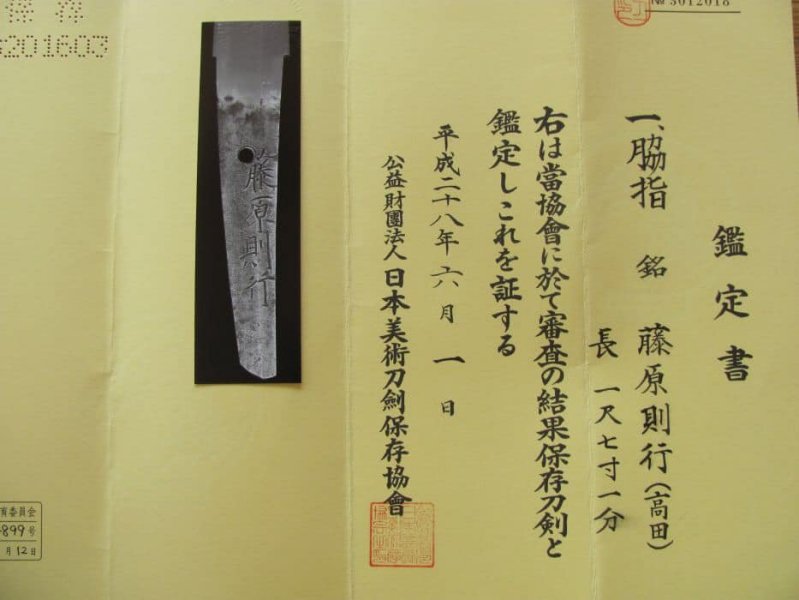 № 3012018
鑑定書
一、脇指 銘 藤原則行(高田)
長 一尺七寸一分
右は當協會に於て審査の結果保存刀剣と
鑑定しこれを証する
平成二十八年六月一日
公益財團法人日本美術刀劍保存協會
藤原則行
201603
育委員会
899号
月12日